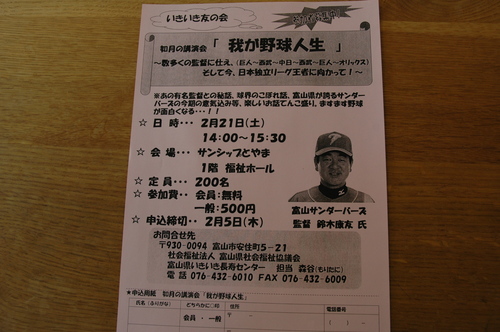 いきいき友の会
如月の講演会「 我が野球人生 」
～数多くの監督に仕え、(巨人～西武～中日～西武～巨人～オリックス)
そして今、日本独立リーグ王者に向かって！～
※あの有名監督との秘話、球界のこぼれ話、富山県が誇るサンダー
バーズの今期の意気込み等、楽しいお話てんこ盛り、ますます野球
が面白くなる・・・！！
☆ 日 時・・・ 2月21日(土)
14：00～15：30
☆ 会 場・・・ サンシップとやま
1階 福祉ホール
☆ 定 員・・・ 200名
☆ 参加費・・ 会員：無料
一般：500円
☆ 申込締切・・ 2月5日(木)
富山サンダーバーズ
監督 鈴木康友 氏
お問合せ先
〒930-0094 富山市安住町5－21
社会福祉法人 富山県社会福祉協議会
富山県いきいき長寿センター 担当 森谷(もりたに)
電話 076-432-6010 FAX 076-432-6009
★申込用紙 如月の講演会「我が野球人生」
氏名(ふりがな) どちらかに○印 住所 電話番号
会員 ・ 一般 〒 －